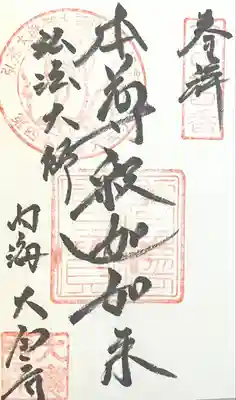 奉拝
本尊釈迦如来
弘法大師
内海 大宝寺